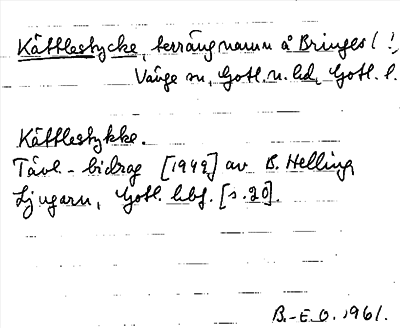 Kättlestycke, terrängnamn å Bringes (!),
Vänge sn, Gotl. n. hd, Gotl. l.
Kättlestykke.
Tävl.-bidrag [1949] av B. Helling
Ljugarn, Gotl. hbf. [s. 20].
B.-E. O. 1961.